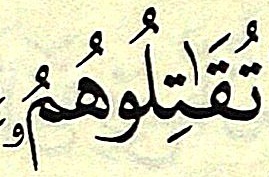 تُقَٰتِلُوهُمُ و